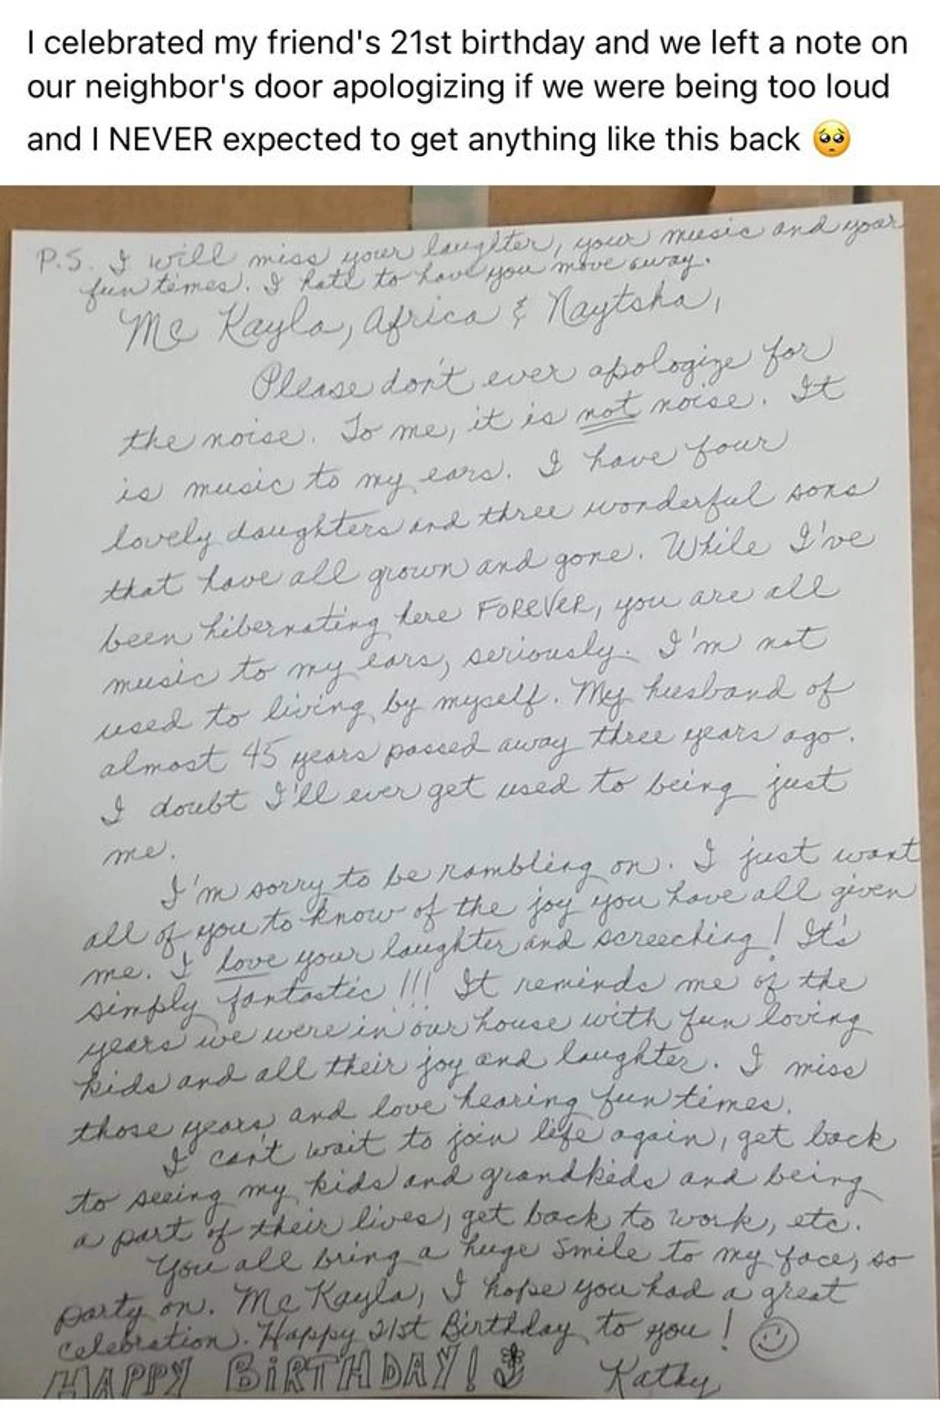 I celebrated my friend's 21st birthday and we left a note on
our neighbor's door apologizing if we were being too loud
and I NEVER expected to get anything like this back 🥺
P.S. I will miss your laughter, your music and your
fun times. I hate to have you move away.
McKayla, Africa & Naytsha,
Please don't ever apologize for
the noise. To me, it is not noise. It
is music to my ears. I have four
lovely daughters and three wonderful sons
that have all grown and gone. While I've
been hibernating here FOREVER, you are all
music to my ears, seriously. I'm not
used to living by myself. My husband of
almost 45 years passed away three years ago.
I doubt I'll ever get used to being just
me.
I'm sorry to be rambling on. I just want
all of you to know of the joy you have all given
me. I love your laughter and screeching! It's
simply fantastic!!! It reminds me of the
years we were in our house with fun loving
kids and all their joy and laughter. I miss
those years and love hearing fun times.
I can't wait to join life again, get back
to seeing my kids and grandkids and being
a part of their lives, get back to work, etc.
You all bring a huge smile to my face, so
party on. McKayla, I hope you had a great
celebration. Happy 21st Birthday to you!
HAPPY BIRTHDAY! Kathy